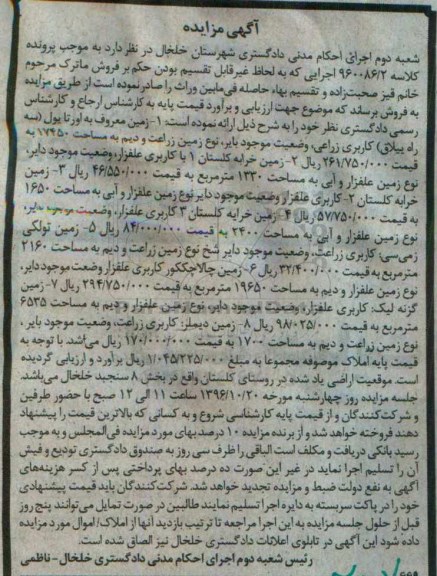 آگهی مزایده
شعبه دوم اجرای احکام مدنی دادگستری شهرستان خلخال در نظر دارد به موجب پرونده
کلاسه ۹۶۰۰۸۶/۲ اجرایی که به لحاظ غیرقابل تقسیم بودن حکم بر فروش ماترک مرحوم
خانم قیز صحبت‌زاده و تقسیم بهاء حاصله فی‌مابین وراث را صادر نموده است از طریق مزایده
به فروش برساند که موضوع جهت ارزیابی و برآورد قیمت پایه به کارشناس ارجاع و کارشناس
رسمی دادگستری نظر خود را به شرح ذیل ارائه نموده است: ۱- زمین معروف به اورتا یول (سه
راه ییلاق) کاربری زراعی، وضعیت موجود بایر، نوع زمین زراعت و دیم به مساحت ۱۷۴۵۰ به
قیمت ۲۶۱/۷۵۰/۰۰۰ ریال ۲- زمین خرابه کلستان ۱ با کاربری علفزار، وضعیت موجود دایر،
نوع زمین علفزار و آبی به مساحت ۱۳۳۰ مترمربع به قیمت ۴۶/۵۵۰/۰۰۰ ریال ۳- زمین
خرابه کلستان ۲- کاربری علفزار وضعیت موجود دایر نوع زمین علفزار و آبی به مساحت ۱۶۵۰
به قیمت ۵۷/۷۵۰/۰۰۰ ریال ۴- زمین خرابه کلستان ۳ کاربری علفزار، وضعیت موجود بایر،
نوع زمین علفزار و آبی به مساحت ۲۴۰۰ به قیمت ۸۴/۰۰۰/۰۰۰ ریال ۵- زمین تولکی
زمی‌سی: کاربری زراعت، وضعیت موجود دایر شخ نوع زمین زراعت و دیم به مساحت ۲۱۶۰
مترمربع به قیمت ۳۲/۴۰۰/۰۰۰ ریال ۶- زمین چالاچککور کاربری علفزار وضعت موجود دایر،
نوع زمین علفزار و دیم به مساحت ۱۹۶۵۰ مترمربع به قیمت ۲۹۴/۷۵۰/۰۰۰ ریال ۷- زمین
گزنه لیک: کاربری علفزار، وضعیت موجود دایر، نوع زمین علفزار و دیم به مساحت ۶۵۳۵
مترمربع به قیمت ۹۸/۰۲۵/۰۰۰ ریال ۸- زمین دیملر: کاربری زراعت، وضعیت موجود بایر،
نوع زمین زراعت و دیم به مساحت ۱۷۰۰ به قیمت ۱۷۰/۰۰۰/۰۰۰ ریال می‌باشد. با توجه به
قیمت پایه املاک موصوفه مجموعا به مبلغ ۱/۰۴۵/۲۲۵/۰۰۰ ریال برآورد و ارزیابی گردیده
است. موقعیت اراضی یاد شده در روستای کلستان واقع در بخش ۸ سنجبد خلخال می‌باشد.
جلسه مزایده روز چهارشنبه مورخه ۱۳۹۶/۱۰/۲۰ ساعت ۱۱ الی ۱۲ صبح با حضور طرفین
و شرکت‌کنندگان و از قیمت پایه کارشناسی شروع و به کسانی که بالاترین قیمت را پیشنهاد
دهند فروخته خواهد شد و از برنده مزایده ۱۰ درصد بهای مورد مزایده فی‌المجلس و به موجب
رسید بانکی دریافت و مکلف است الباقی را ظرف سی روز به صندوق دادگستری تودیع و فیش
آن را تسلیم اجرا نماید در غیر این صورت ده درصد بهای پرداختی پس از کسر هزینه‌های
آگهی به نفع دولت ضبط و مزایده تجدید خواهد شد. شرکت‌کنندگان باید قیمت پیشنهادی
خود را در پاکت سربسته به دایره اجرا تسلیم نمایند طالبین در صورت تمایل می‌توانند پنج روز
قبل از حلول جلسه مزایده به این اجرا مراجعه تا ترتیب بازدید آنها از املاک/اموال مورد مزایده
داده شود این آگهی در تابلوی اعلانات دادگستری خلخال نیز الصاق شده است.
رئیس شعبه دوم اجرای احکام مدنی دادگستری خلخال - ناظمی